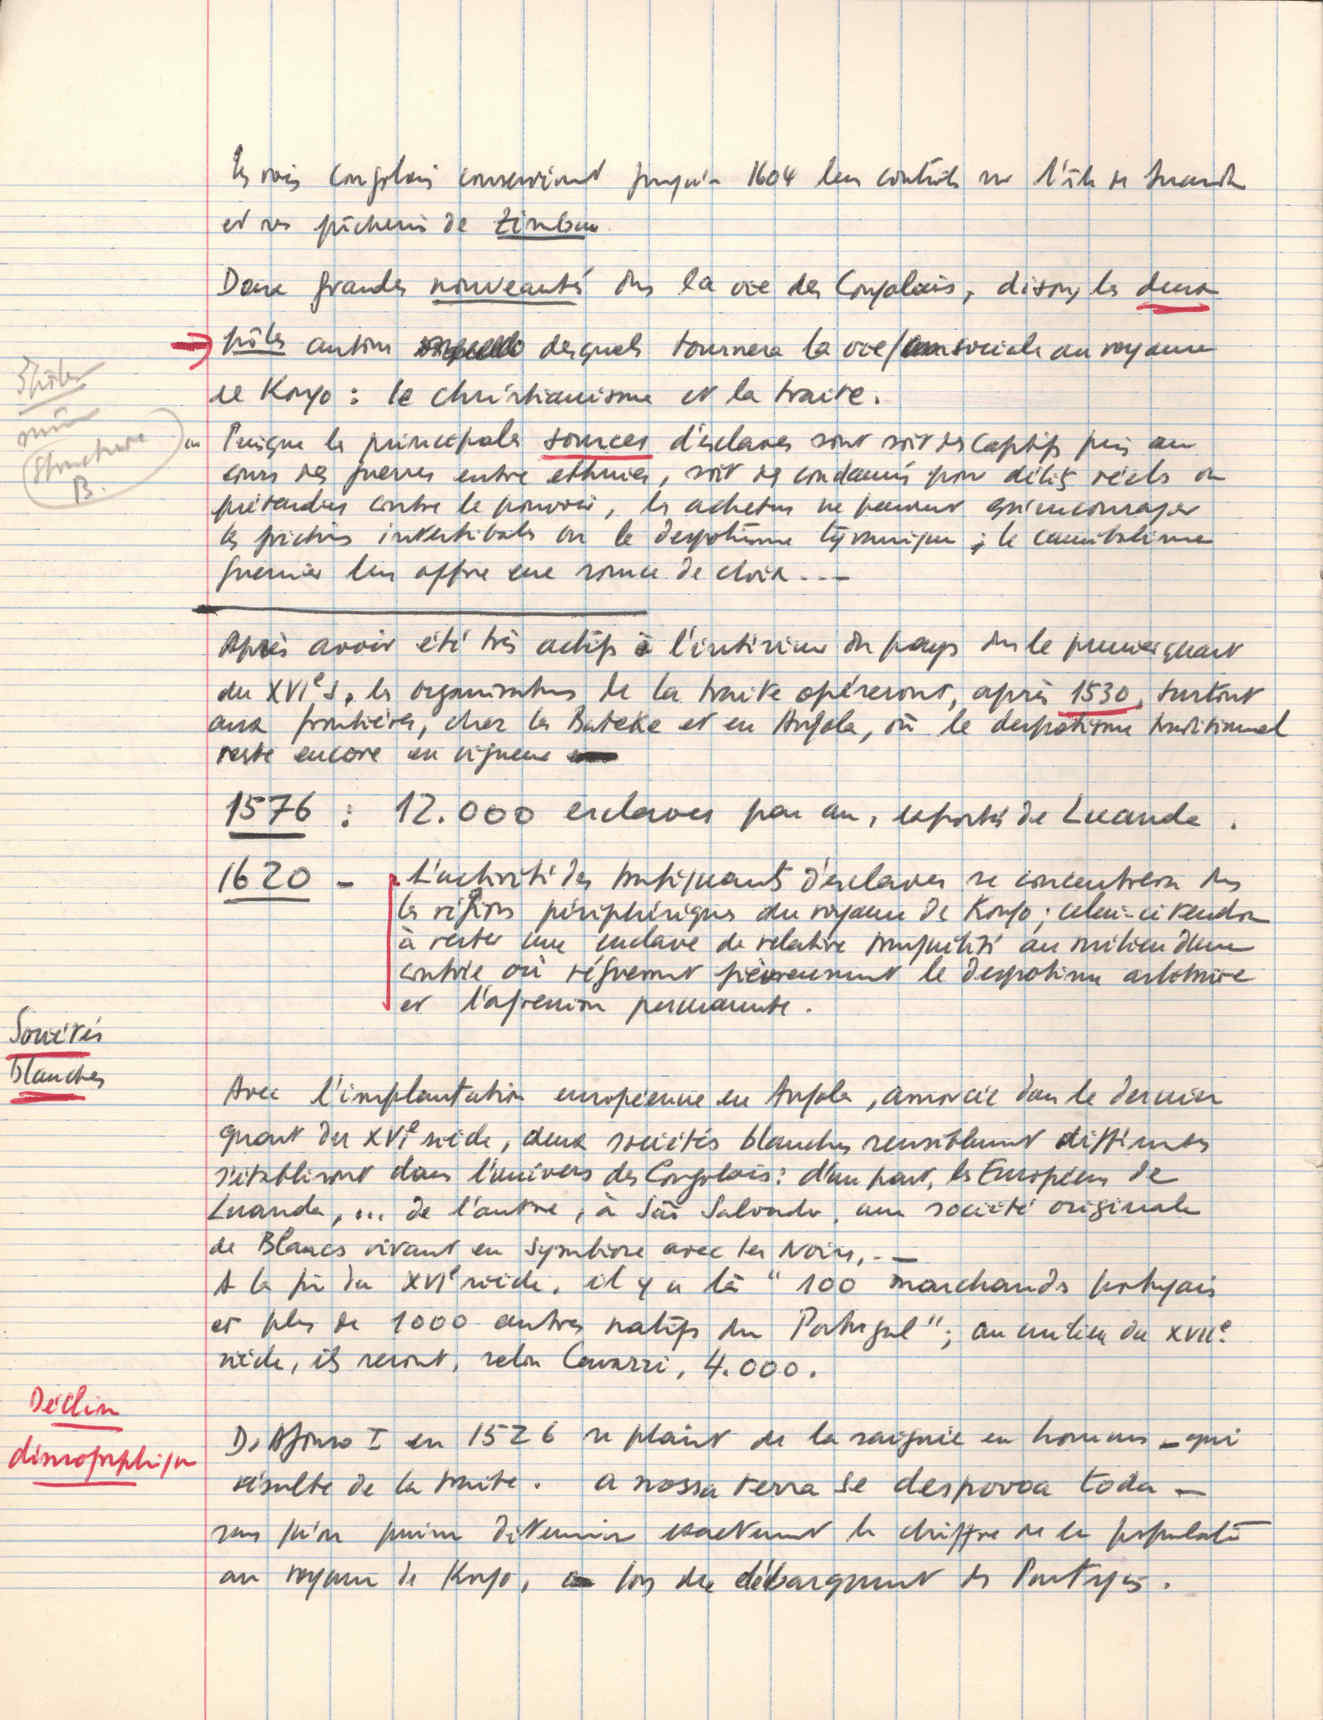 Les rois congolais conserveront jusqu'à 1604 leur contrôle sur l'île de Luanda
et ses pêcheries de zimbu
Deux grandes nouveautés ds la vie des Congolais, disons les deux
pôles autour desquels tournera la vie sociale au royaume
de Kongo : le christianisme et la traite.
Puisque les principales sources d'esclaves sont soit des captifs pris au
cours des guerres entre ethnies, soit des condamnés pour délits réels ou
prétendus contre le pouvoir, les acheteurs ne peuvent qu'encourager
les frictions intertribales ou le despotisme tyrannique ; le cannibalisme
guerrier leur offre une source de choix...
Après avoir été très actifs à l'intérieur du pays ds le premier quart
du XVIe s, les organisateurs de la traite opéreront, après 1530, surtout
aux frontières, chez les Bateke et en Angola, où le despotisme traditionnel
reste encore en vigueur
1576 : 12.000 esclaves par an, exportés de Luanda.
1620 - L'activité des trafiquants d'esclaves se concentrera ds
les régions périphériques du royaume de Kongo ; celui-ci tendra
à rester une enclave de relative tranquillité au milieu d'une
contrée où régneront le despotisme arbitraire
et l'agression permanente.
Sociétés
blanches
Avec l'implantation européenne en Angola, amorcée dans le dernier
quart du XVIe siècle, deux sociétés blanches sensiblement différentes
s'établiront dans l'univers des Congolais : d'un part, les Européens de
Luanda, ... de l'autre, à São Salvador, une société originale
de Blancs vivant en symbiose avec les Noirs,..
A la fin du XVIe siècle, il y a là "100 marchands portugais
et plus de 1000 autres natifs du Portugal" ; au milieu du XVIIe
siècle, ils seront, selon Cavazzi, 4.000.
Déclin
démographique
D. Afonso I en 1526 se plaint de la saignée en hommes - qui
résulte de la traite. a nossa terra se despovoa toda -
sans qu'on puisse déterminer exactement le chiffre de la populatō
au royaume de Kongo, lors du débarquement des Portugais.